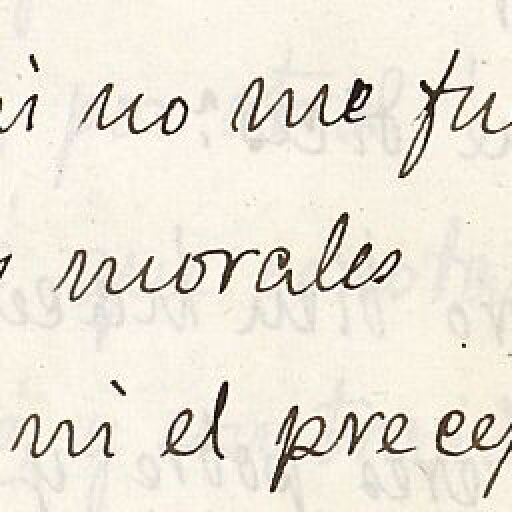 ni no me fu
s morales
ni el precep